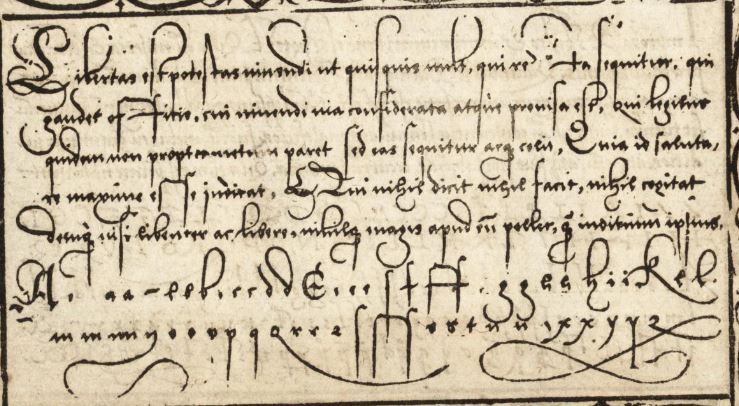 Libertas est potestas vivendi ut quisquis vult, qui rec̃ta sequitur, qui
gaudet officio, cui vivendi via considerata atque provisa est, qui legibus
quidem non propter metum paret sed eas sequitur atq; colit, Quia id saluta,
re maxime esse judicat, Qui nihil dicit nihil facit, nihil cogitat
deniq; nisi libenter ac libere, nihilq; magis apud eũ pollet, q̃ iudicium ipsius,
A. a a b b b. c c c d d E e e e s f f f. g g h h h i i k k l l.
m m m n y o o v p q o r r r 2 ſ ſſ ſſ s s t u u ı x x x y y z